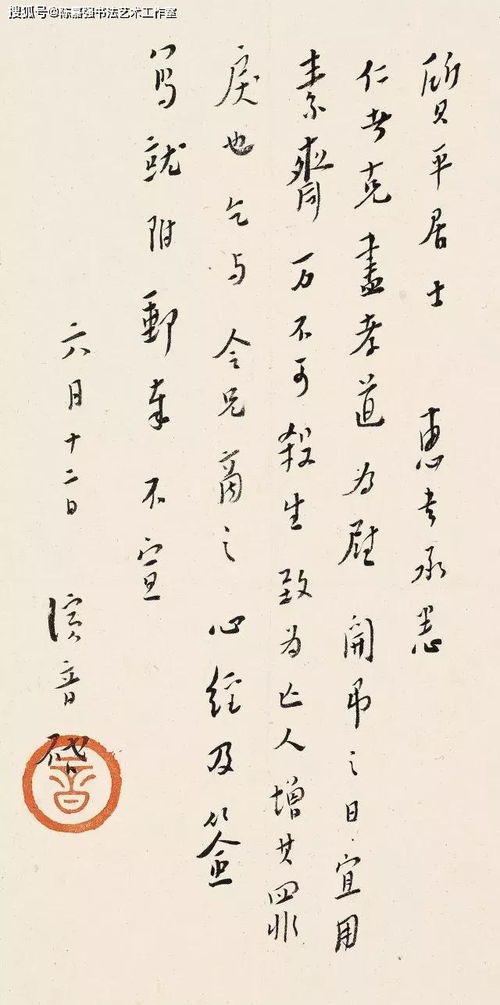 搜狐号@陈嘉强书法艺术工作室
質平居士 惠書承悉
仁者克盡孝道為慰開弔之日宜用
素齋万不可殺生致為亡人增其罪
戾也乞与令兄商之心經及簽
寫就附郵奉不宣
六月十二日 演音啟